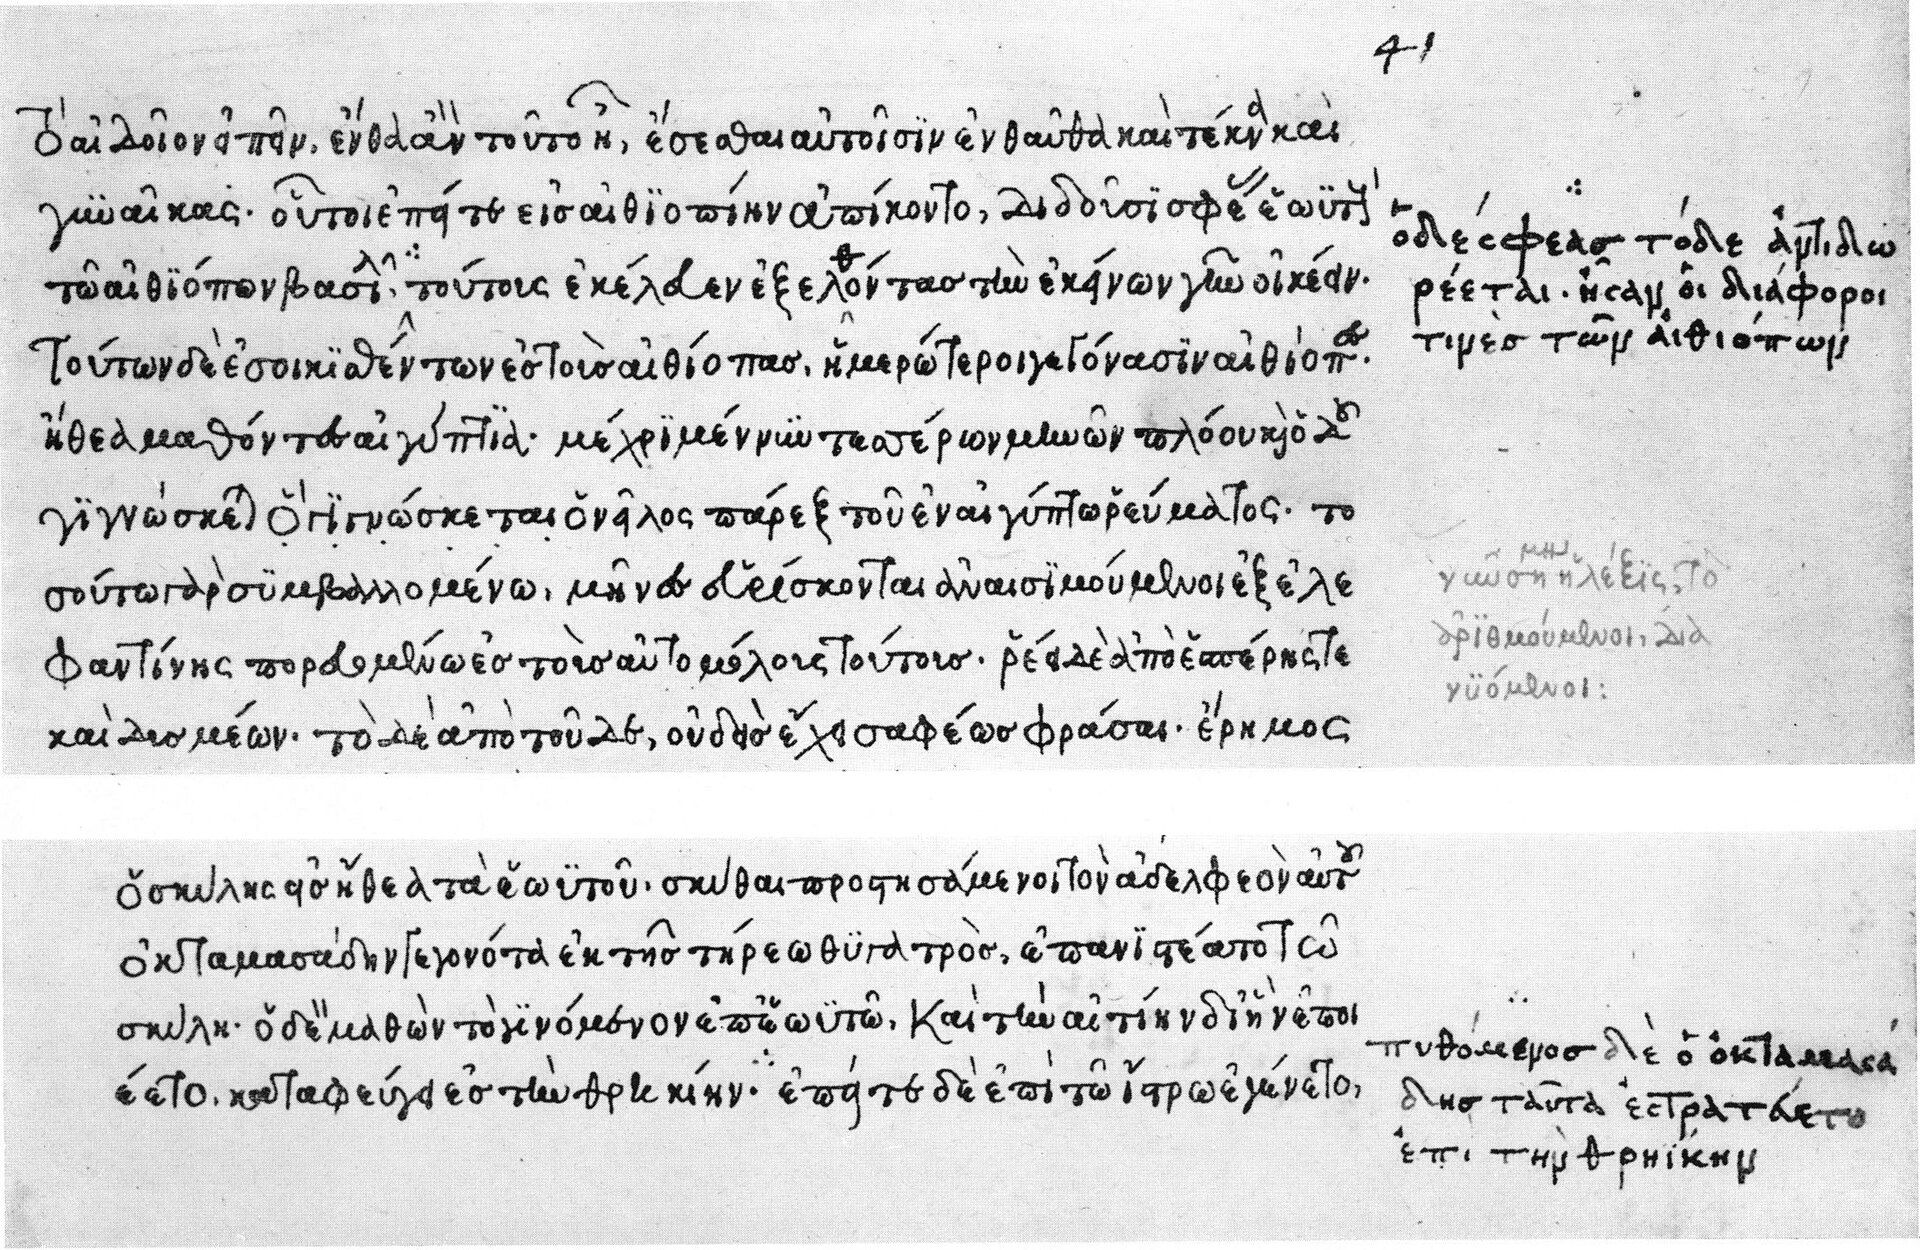 41
τὸ αἰδοῖον εἰπεῖν. ἔνθα ἂν τοῦτο ἦ, ἔσεσθαι αὐτοῖσϊν ἐνθαῦθα καὶ τέκνα καὶ
γυναῖκας· οὗτοι ἐπείτε εἰσ αἰθϊοπίην ἀπίκοντο, διδοῦσϊ σφέας ἑωϋτοὺς
τῶ αἰθϊόπων βασιλεῖ· τούτοις ἐκέλευεν ἐξελθόντας τὴν ἐκείνων γῆν οἰκέειν.
τούτων δὲ ἐσοικϊσθέντων ἐς τοὺς αἰθίοπας, ἡμερώτεροι γεγόνασϊν αἰθίοπες.
ἤθεα μαθόντες αἰγύπτϊα· μέχρϊ μέν νυν τεσσέρων μηνῶν πλόου καὶ ὁδοῦ
γϊγνώσκεται ὁ γϊγνώσκεται ὁ νεῖλος πάρεξ τοῦ ἐν αἰγύπτω ῥεύματος· το
σούτω γὰρ συμβαλλομένω, μῆνες εὑρίσκονται ἀναισϊμούμενοι ἐξ ἐλε
φαντίνης πορευομένω ἐς τοὺς αὐτομόλους τούτους. ῥέει δὲ ἀπὸ ἑσπέρης τε
καὶ δυσμέων· τὸ δὲ ἀπὸ τοῦδε, οὐδεὶς ἔχει σαφέως φράσαι· ἔρημος
ὁ δέ σφεας τόδε ἀντιδω
ρέεται. ἦσαν οἱ διάφοροι
τινὲς τῶν αἰθιόπων
ἡ λέξϊς, τὸ
ἀρϊθμούμενοι,
ὁ σκύλης εἰς ἤθεα τὰ ἑωϋτοῦ. σκύθαι προστησάμενοι τὸν ἀδελφεὸν αὐτοῦ
ὀκταμασάδην γεγονότα ἐκ τῆς τήρεω θϋγατρὸς, ἐπανϊστέατο τῶ
σκύλη. ὁ δὲ μαθὼν τὸ γϊνόμενον ἐπ' ἑωϋτῶ, καὶ τὴν αἰτίην δι' ἣν ἐποι
έετο, καταφεύγει ἐς τὴν θρηκίην· ἐπείτε δὲ ἐπὶ τῶ ἴστρω ἐγένετο,
πυθόμενος δὲ ὁ ὀκταμασά
δης ταῦτα ἐστρατεύετο
ἐπὶ τὴν θρηΐκην